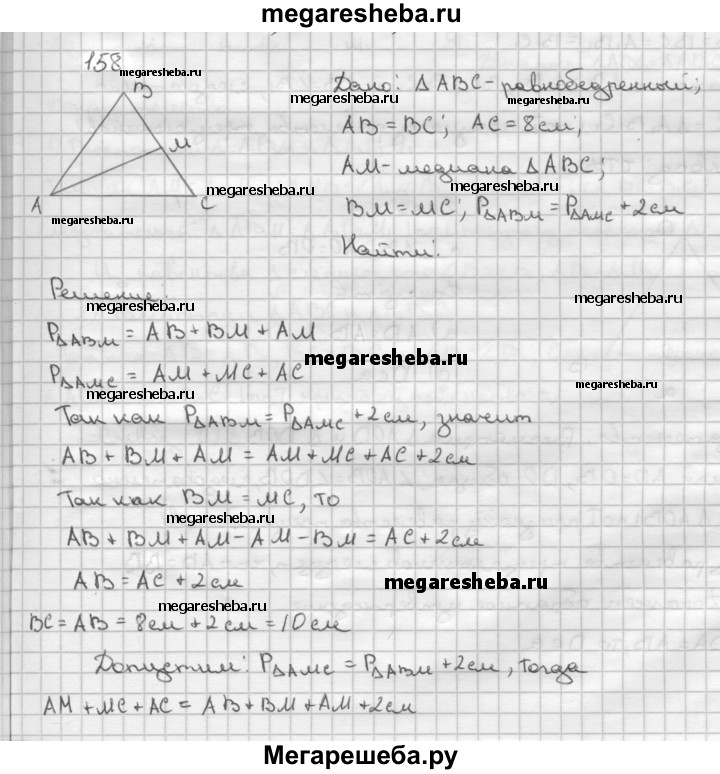 megaresheba.ru
158
megaresheba.ru
B
M
A
C
megaresheba.ru
megaresheba.ru
Дано: ΔABC - равнобедренный;
megaresheba.ru
megaresheba.ru
AB = BC; AC = 8 см;
AM - медиана ΔABC;
megaresheba.ru
BM = MC; PΔABM = PΔAMC + 2 см
Найти:
Решение
megaresheba.ru
megaresheba.ru
PΔABM = AB + BM + AM
megaresheba.ru
PΔAMC = AM + MC + AC
megaresheba.ru
megaresheba.ru
Так как PΔABM = PΔAMC + 2 см, значит
AB + BM + AM = AM + MC + AC + 2 см
Так как BM = MC, то
megaresheba.ru
AB + BM + AM - AM - BM = AC + 2 см
AB = AC + 2 см
megaresheba.ru
megaresheba.ru
BC = AB = 8 см + 2 см = 10 см
Допустим: PΔAMC = PΔABM + 2 см, тогда
megaresheba.ru
AM + MC + AC = AB + BM + AM + 2 см
Мегарешеба.ру